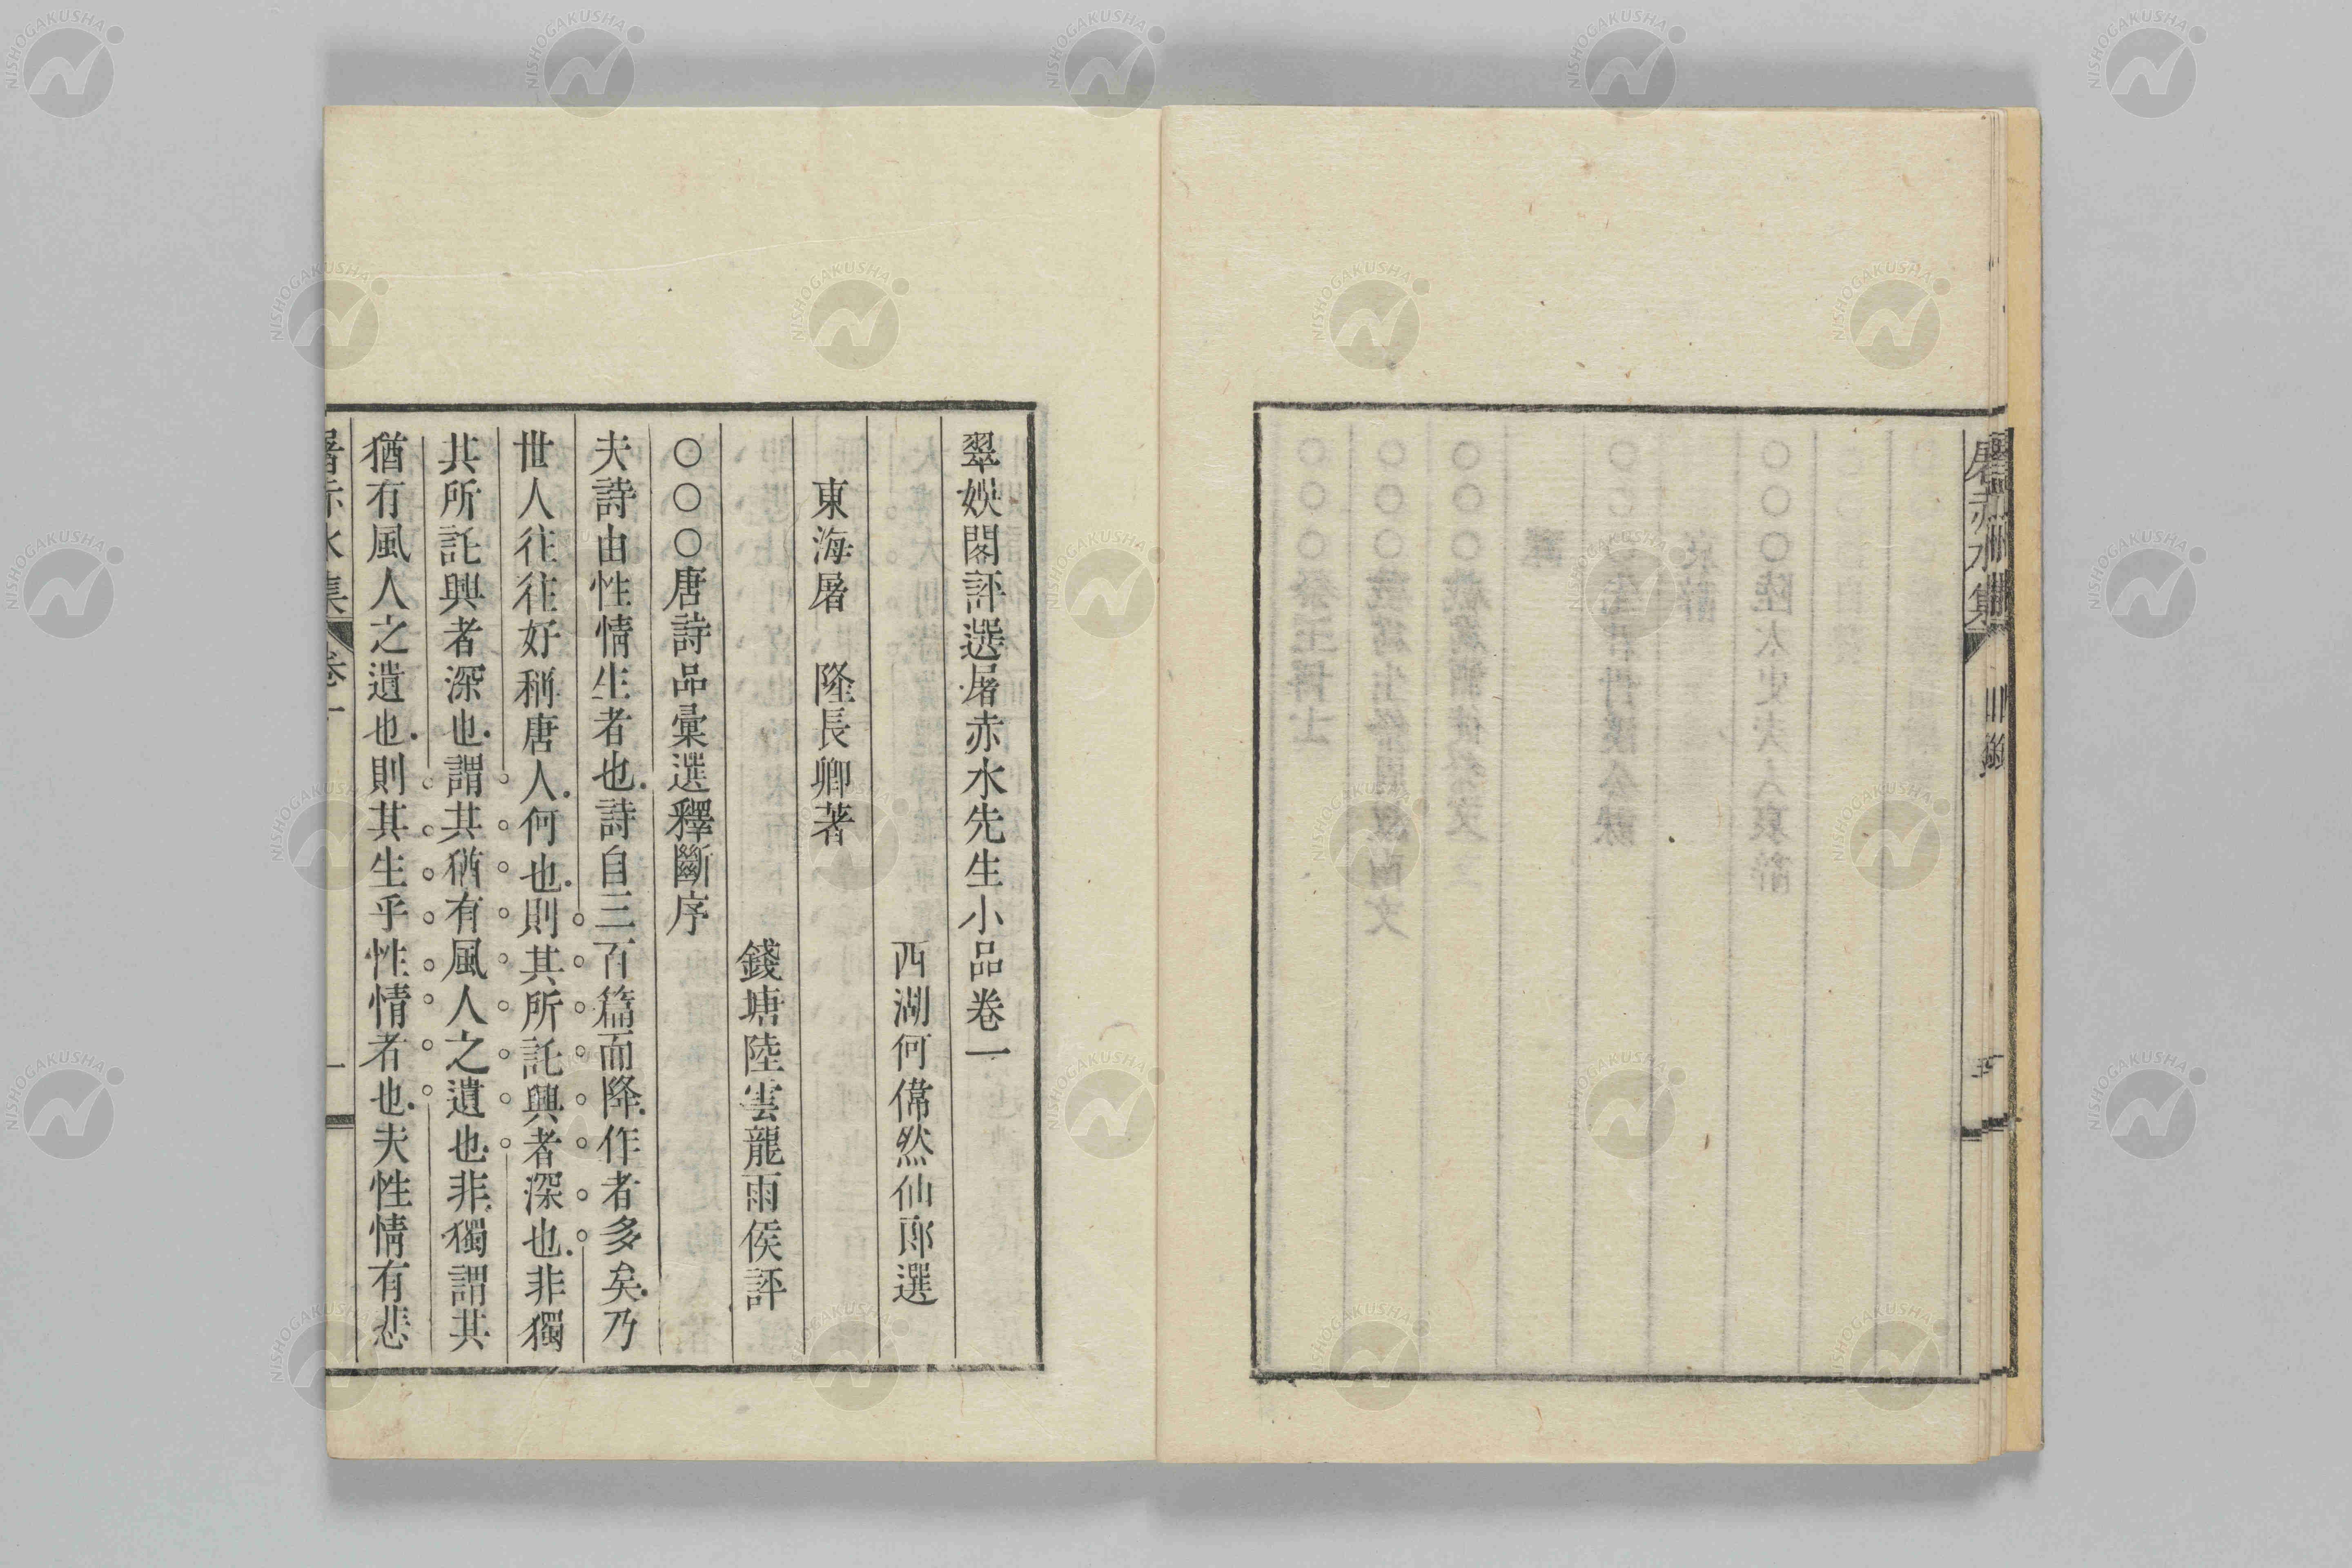 屠赤水集
目錄
五
翠娛閣評選屠赤水先生小品卷一
西湖何偉然仙郎選
東海屠　隆長卿著
錢塘陸雲龍雨侯評
○○○唐詩品彙選釋斷序
夫詩由性情生者也詩自三百篇而降作者多矣乃
世人往往好稱唐人何也則其所託興者深也非獨
其所託興者深也謂其猶有風人之遺也非獨謂其
猶有風人之遺也則其生乎性情者也夫性情有悲
屠赤水集
卷一
一
NISHOGAKUSHA